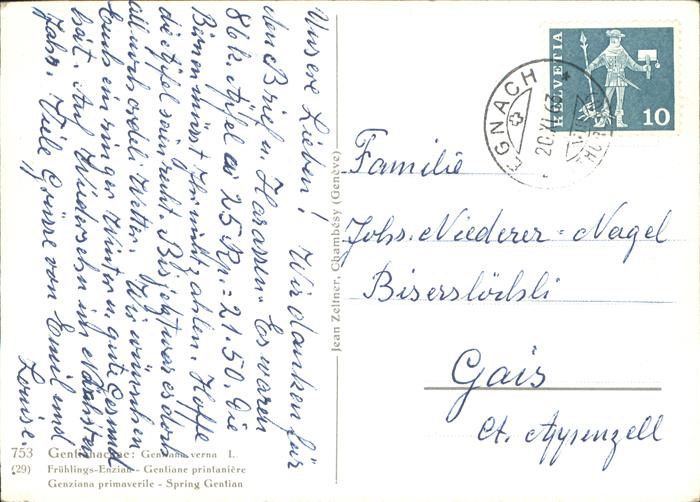 Unsere Lieben! Wir danken für
den Brief u. Harassen. Es waren
86 k. Äpfel à 25 Rp. = 21.50. Die
Birnen müsst Ihr nicht zahlen. Hoffe
die Äpfel seien recht. Bis jetzt war es doch
all noch ordeli Wetter. Wir wünschen
Euch ein ringer Winter u. gute Gesund
heit. Auf Wiedersehn im Nächsten
Jahr. Viele Grüsse von Emil und
Louise.
753 Gentianaceae: Gentiana verna L.
(29) Frühlings-Enzian - Gentiane printanière
Genziana primaverile - Spring Gentian
Jean Zeltner, Chambésy (Genève)
HELVETIA
10
EGNACH
20.XI.63
Familie
Johs. Niederer-Nagel
Gais
Ct. Appenzell